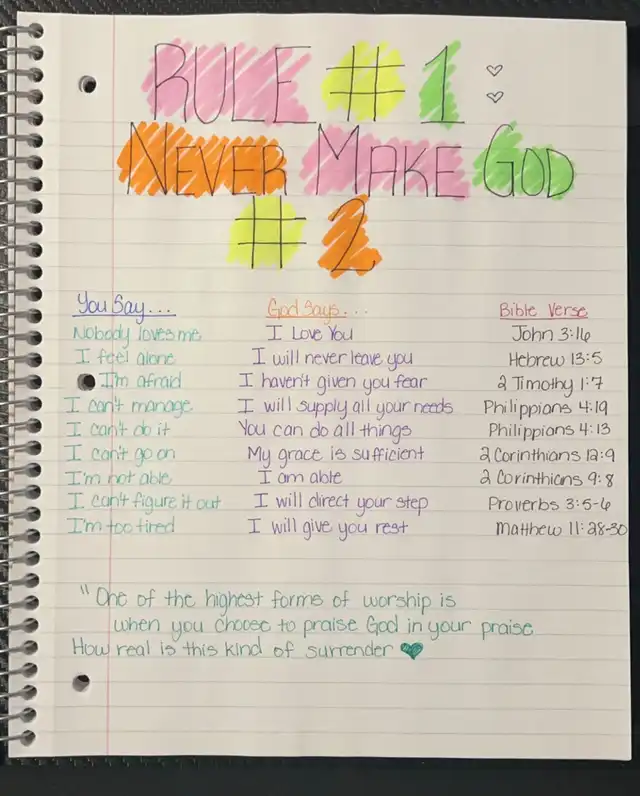 RULE #1:
NEVER MAKE GOD
#2
You Say... God Says... Bible Verse
Nobody loves me I Love You John 3:16
I feel alone I will never leave you Hebrew 13:5
I'm afraid I haven't given you fear 2 Timothy 1:7
I can't manage I will supply all your needs Philippians 4:19
I can't do it You can do all things Philippians 4:13
I can't go on My grace is sufficient 2 Corinthians 12:9
I'm not able I am able 2 Corinthians 9:8
I can't figure it out I will direct your step Proverbs 3:5-6
I'm too tired I will give you rest Matthew 11:28-30
"One of the highest forms of worship is
when you choose to praise God in your praise
How real is this kind of surrender ♥